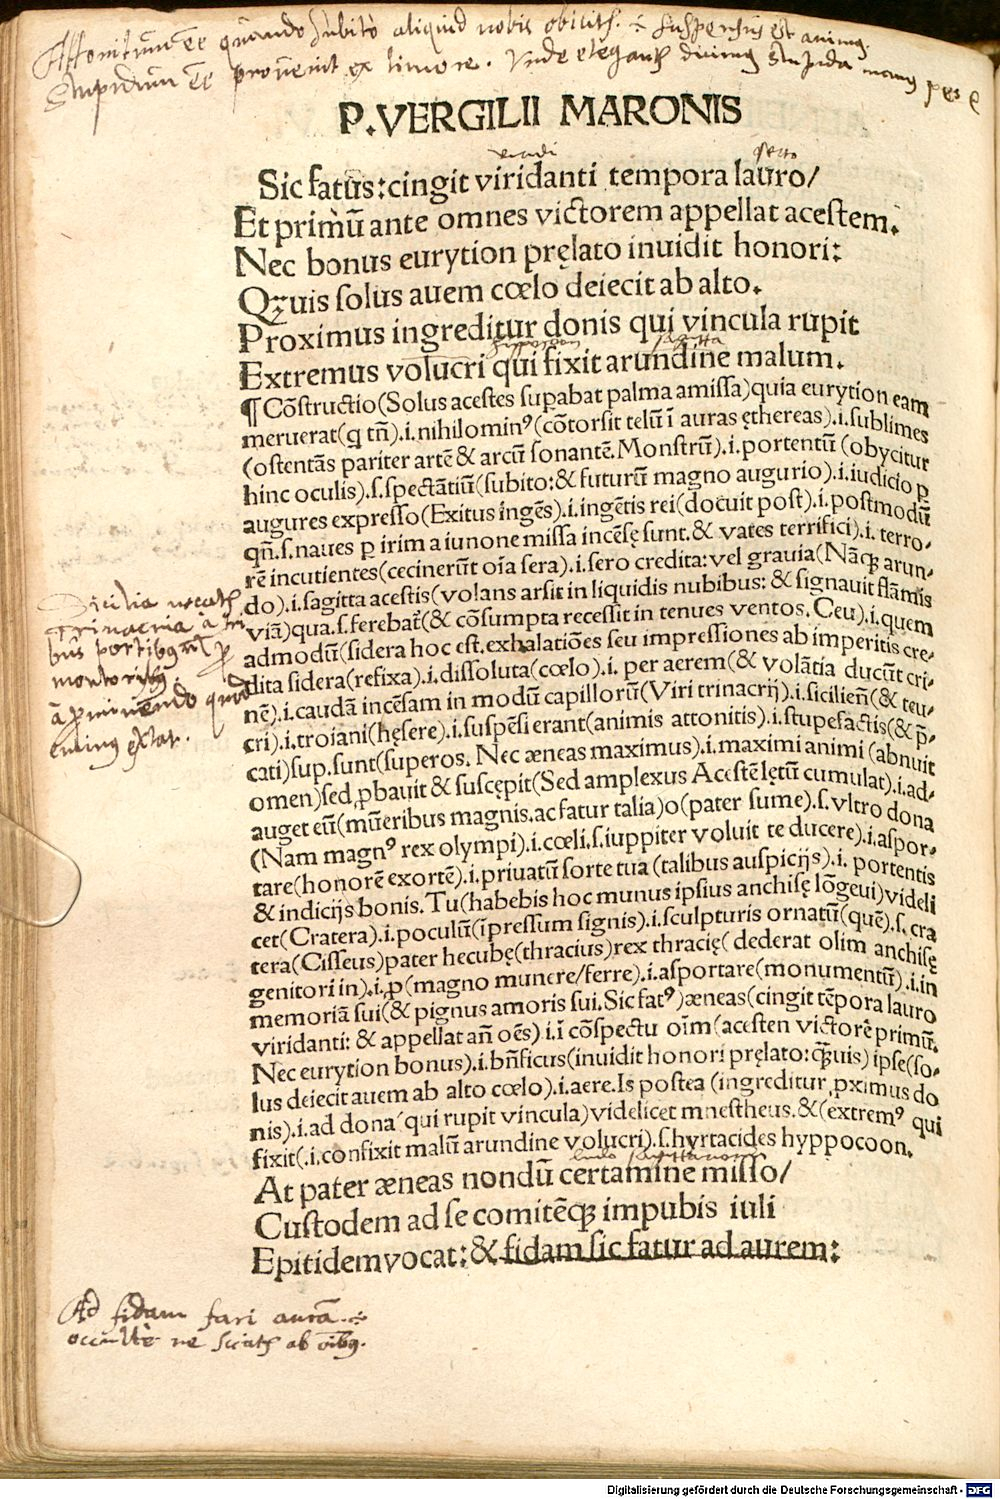 Attonitum ēē quando subito aliquid nobis obicitr̄ ÷ suspensus est animꝰ.
Stupidum ēē provenit ex timore. Unde eleganter dicimꝰ stupida
P.VERGILII MARONIS
viridi
Sic fatus: cingit viridanti tempora lauro/
Et primū ante omnes victorem appellat acestem.
Nec bonus eurytion pręlato inuidit honori:
Qꝫuis solus auem cœlo deiecit ab alto.
Proximus ingreditur donis qui vincula rupit
hyppocoon sagitta
Extremus volucri qui fixit arundine malum.
¶ Cōstructio(Solus acestes supabat palma amissa)quia eurytion eam
meruerat(q tn̄).i.nihilominꝰ(cōtorsit telū ī auras ęthereas).i.sublimes
(ostentās pariter artē & arcū sonantē.Monstrū).i.portentū (obycitur
hinc oculis).s.spectātiū(subito:& futurū magno augurio).i.iudicio ꝑ
augures expresso(Exitus ingēs).i.ingētis rei(docuit post).i.postmodū
qn̄.s.naues ꝑ irim a iunone missa incēsę sunt.& vates terrifici).i. terro/
rē incutientes(cecinerūt oīa sera).i.sero credita: vel grauia(Nāqꝫ arun/
do).i.sagitta acestis(volans arsit in liquidis nubibus: & signauit flāmis
viā)qua.s.ferebat̄(& cōsumpta recessit in tenues ventos. Ceu).i.quem
admodū(sidera hoc est.exhalatiōes seu impressiones ab imperitis cre/
dita sidera(refixa).i.dissoluta(cœlo).i. per aerem(& volātia ducūt cri/
nē).i.caudā incēsam in modū capillorū(Viri trinacrij).i.sicilien̄(& teu/
cri).i.troiani(hęsere).i.suspēsi erant(animis attonitis).i.stupefactis(& p̄/
cati)sup.sunt(superos. Nec æneas maximus).i.maximi animi (abnuit
omen)sed ꝓbauit & suscępit(Sed amplexus Acestē lętū cumulat).i.ad/
auget eū(mūeribus magnis.ac fatur talia)o(pater sume).s.vltro dona
(Nam magnꝰ rex olympi).i.cœli.s.iuppiter voluit te ducere).i.aspor/
tare(honorē exortē).i.priuatū sorte tua (talibus auspicijs).i. portentis
& indicijs bonis. Tu(habebis hoc munus ipsius anchisę lōgeui)videli
cet(Cratera).i.poculū(īpressum signis).i.sculpturis ornatū(quē).s. cra
tera(Cisseus)pater hecubę(thracius)rex thracię( dederat olim anchisę
genitori in).i.ꝓ(magno munere/ferre).i.asportare(monumentū).i.in
memoriā sui(& pignus amoris sui. Sic fatꝰ)æneas(cingit tēpora lauro
viridanti: & appellat an̄ oēs).i.ī cōspectu oīm(acesten victorē primū.
Nec eurytion bonus).i.bn̄ficus(inuidit honori pręlato:qꝫuis) ipse(so/
lus deiecit auem ab alto cœlo).i.aere.Is postea (ingreditur ꝓximus do
nis).i.ad dona(qui rupit vincula)videlicet mnestheus.&(extremꝰ qui
fixit(.i.confixit malū arundine volucri).s.hyrtacides hyppocoon.
ludo sagittationis
At pater æneas nondū certamine misso/
Custodem ad se comitēqꝫ impubis iuli
Epitidem vocat: & fidam sic fatur ad aurem:
Sicilia vocatr̄
Trinacria a tri
bus
montoriis
Ad fidam fari aurā. ÷
occultè ne sciatr̄ ab oībꝰ.
Digitalisierung gefördert durch die Deutsche Forschungsgemeinschaft - DFG